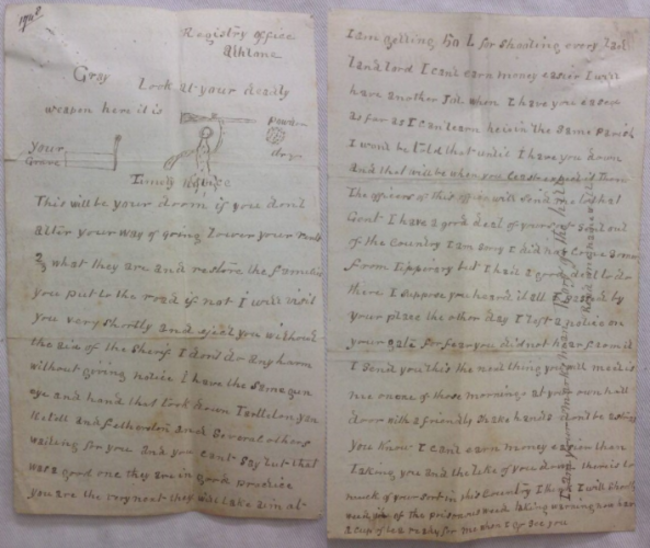 Registry office
Athlone
Gray Look at your deadly
weapon here it is
powder
Your
Grave
Timely Notice
This will be your doom if you dont
alter your way of going Lower your rents
2/3 what they are and restore the families
you put to the road if not I will visit
you very shortly and eject you without
the aid of the Sheriff I dont do any harm
without giving notice I have the same gun
eye and hand that took down Tarlleton
and Fetherston and Several others
waiting for you and you cant say but that
was a good one they are in good practice
you are the very next they will take aim at
I am getting 50 L for shooting every
land lord I cant earn money easier I will
have another Job when I have you eased
as far as I can learn he is in the same parish
I wont be told that until I have you down
and that will be when you least expect it
The officers of this office will send me to that
Gent I have a good deal of yours
of the Country I am sorry I did not
from Tipperary but I had a good deal to do
there I suppose you heard it all I passed by
your place the other day I left a notice on
your gate for fear you did not hear from it
I send you this the next thing you will meet is
me one of those mornings at your own hall
door with a friendly shake hands dont be
You know I cant earn money easier than
Taking you and the like of you down there is to
much of your sort in this Country I
take warning now have
a cup of tea ready for me when I go see you